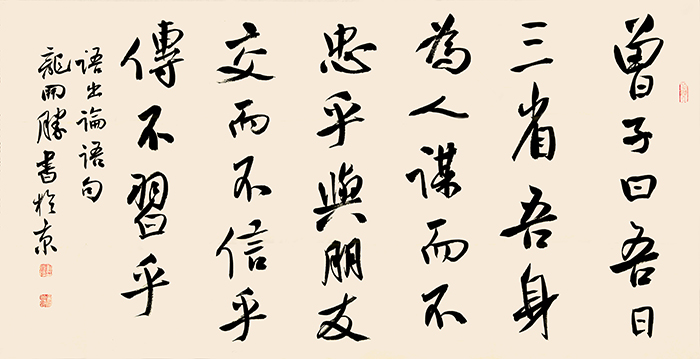 曾子曰吾日
三省吾身
為人謀而不
忠乎與朋友
交而不信乎
傳不習乎
語出論語句
龍開勝書於京